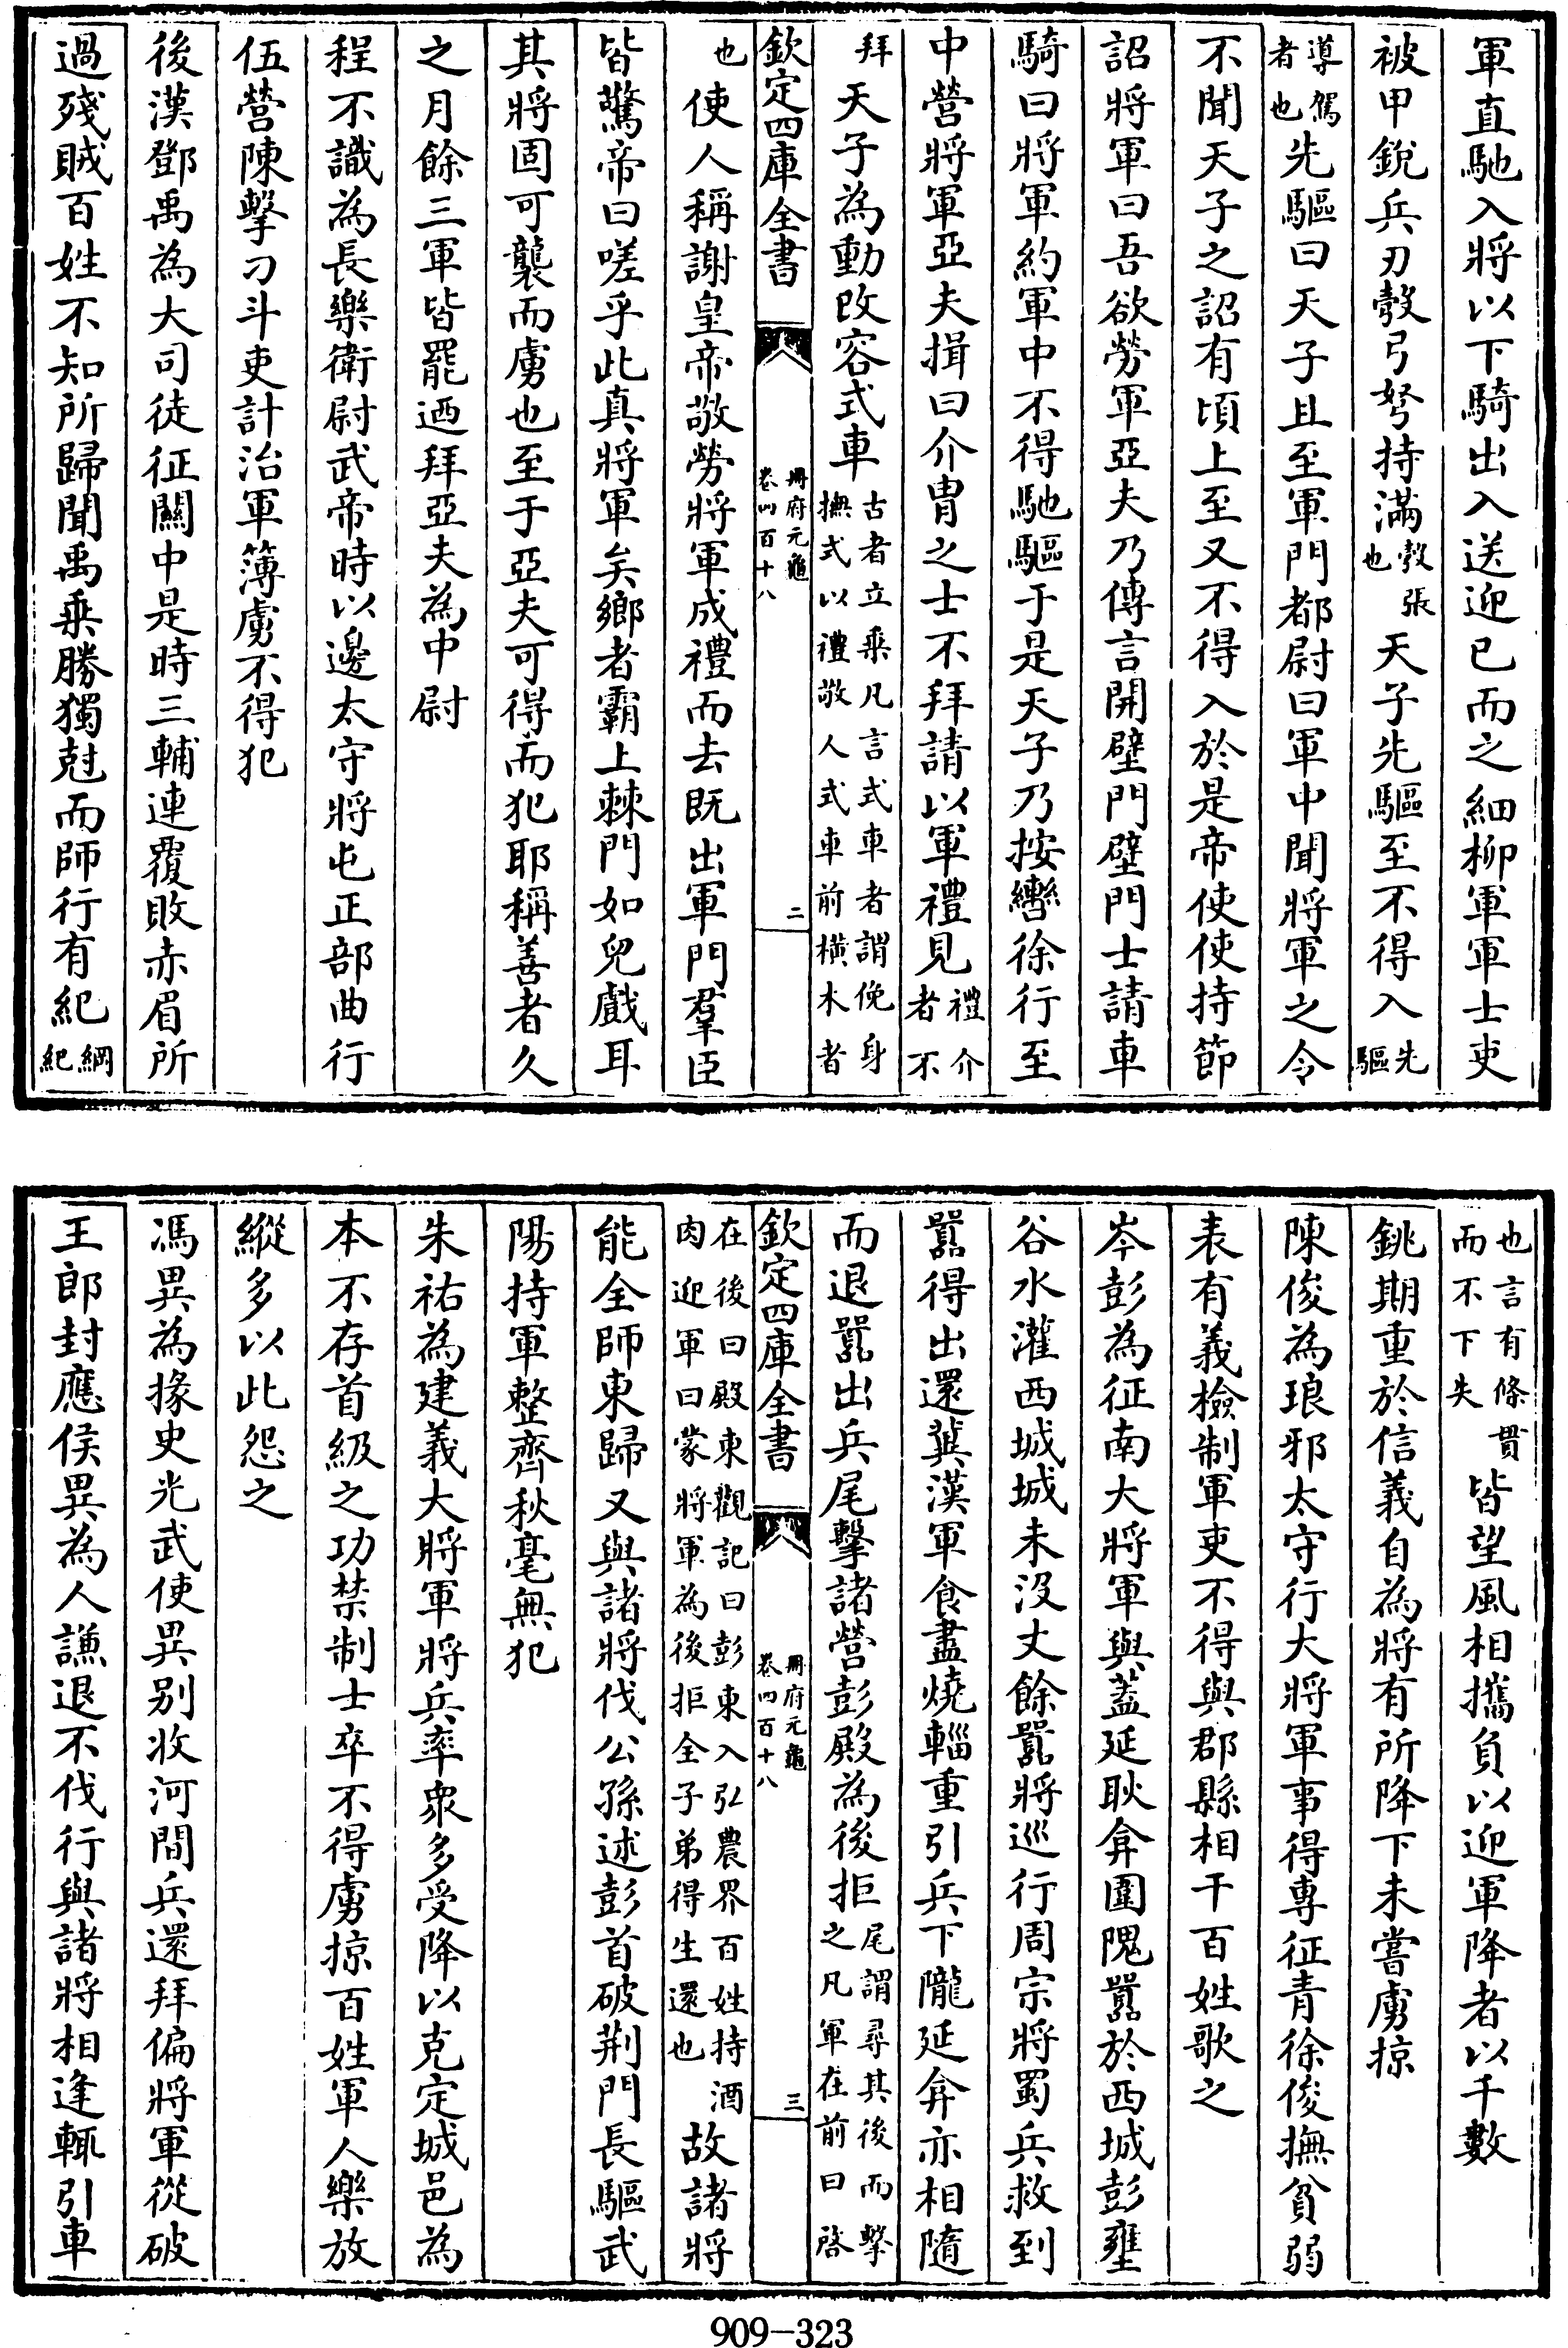 軍直馳入將以下騎出入送迎已而之細柳軍軍士吏
被甲銳兵刃彀弓弩持滿彀張也天子先驅至不得入先驅
導駕者也先驅曰天子且至軍門都尉曰軍中聞將軍之令
不聞天子之詔有頃上至又不得入於是帝使使持節
詔將軍曰吾欲勞軍亞夫乃傳言開壁門壁門士請車
騎曰將軍約軍中不得馳驅于是天子乃按轡徐行至
中營將軍亞夫揖曰介胄之士不拜請以軍禮見禮介者不
拜天子為動改容式車古者立乘凡言式車者謂俛身撫式以禮敬人式車前橫木者
欽定四庫全書 冊府元龜 卷四百十八 二
也使人稱謝皇帝敬勞將軍成禮而去既出軍門羣臣
皆驚帝曰嗟乎此真將軍矣鄉者霸上棘門如兒戲耳
其將固可襲而虜也至于亞夫可得而犯耶稱善者久
之月餘三軍皆罷迺拜亞夫為中尉
程不識為長樂衛尉武帝時以邊太守將屯正部曲行
伍營陳擊刁斗吏計治軍簿虜不得犯
後漢鄧禹為大司徒征關中是時三輔連覆敗赤眉所
過殘賊百姓不知所歸聞禹乘勝獨尅而師行有紀綱紀
也言有條貫而不下失皆望風相攜負以迎軍降者以千數
銚期重於信義自為將有所降下未嘗虜掠
陳俊為琅邪太守行大將軍事得專征青徐俊撫貧弱
表有義檢制軍吏不得與郡縣相干百姓歌之
岑彭為征南大將軍與蓋延耿弇圍隗囂於西城彭壅
谷水灌西城城未沒丈餘囂將巡行周宗將蜀兵救到
囂得出還冀漢軍食盡燒輜重引兵下隴延弇亦相隨
而退囂出兵尾擊諸營彭殿為後拒尾謂尋其後而擊之凡軍在前曰啓
欽定四庫全書 冊府元龜 卷四百十八 三
在後曰殿東觀記曰彭東入弘農界百姓持酒肉迎軍曰蒙將軍為後拒全子弟得生還也故諸將
能全師東歸又與諸將伐公孫述彭首破荆門長驅武
陽持軍整齊秋毫無犯
朱祐為建義大將軍將兵率衆多受降以克定城邑為
本不存首級之功禁制士卒不得虜掠百姓軍人樂放
縱多以此怨之
馮異為掾史光武使異別收河間兵還拜偏將軍從破
王郎封應侯異為人謙退不伐行與諸將相逢輒引車
909-323